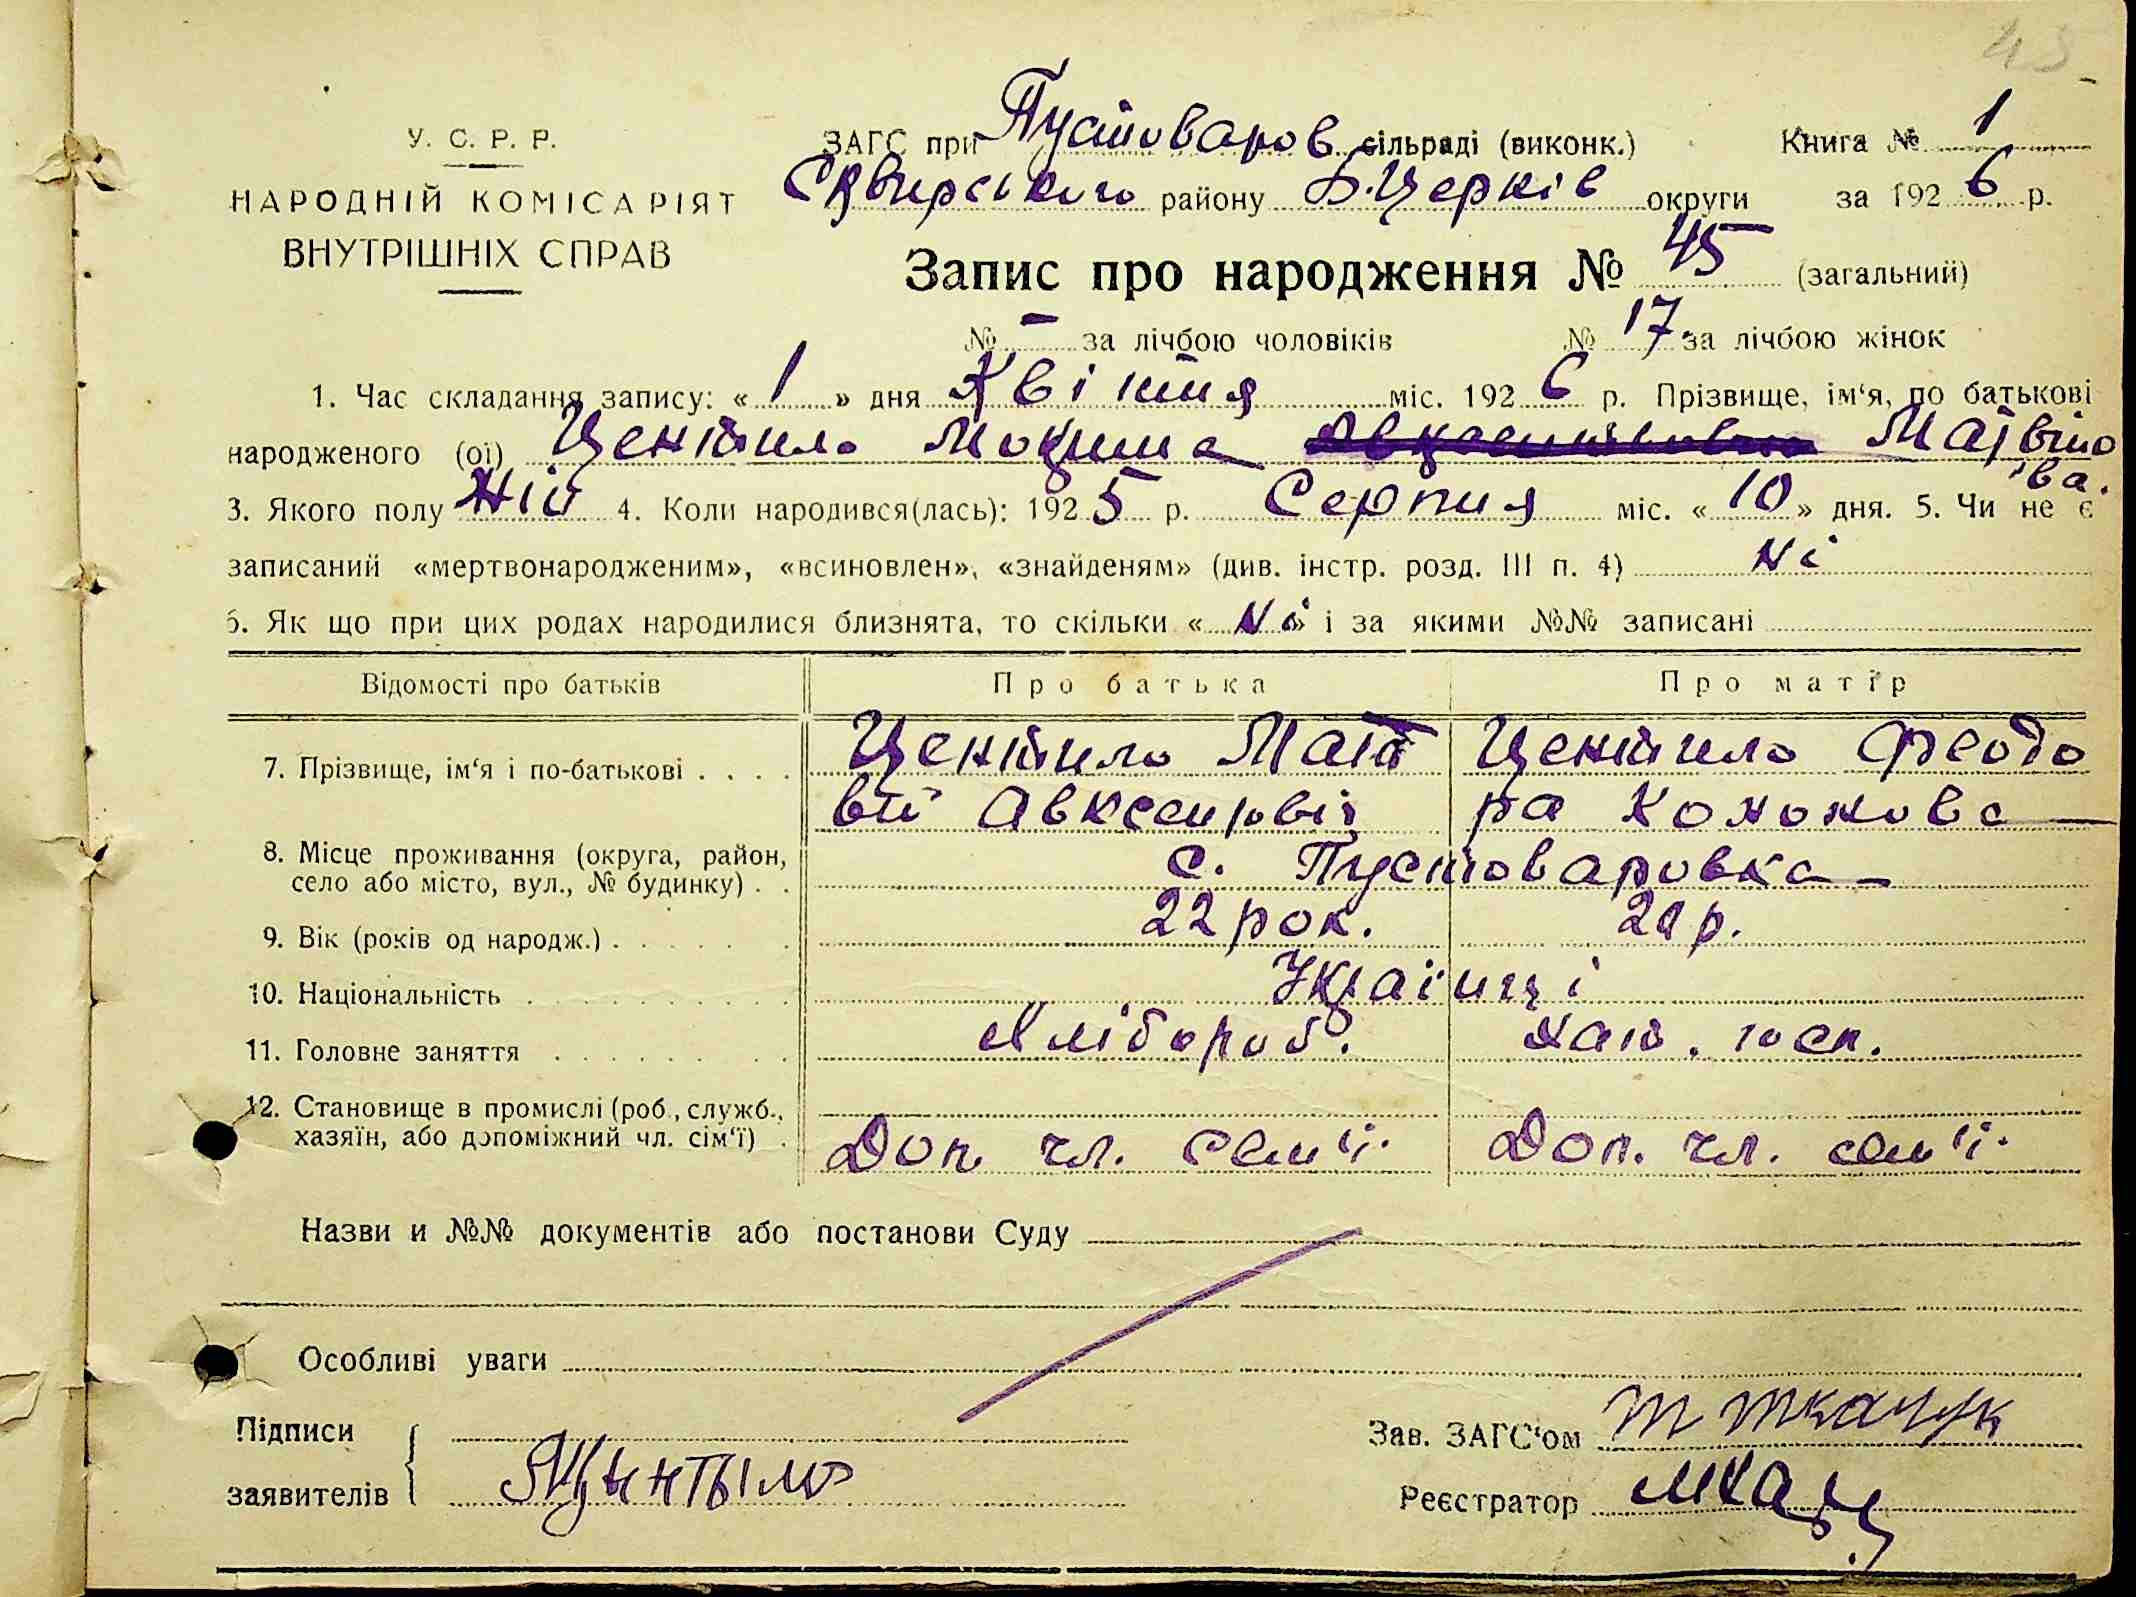 45
У. С. Р. Р.
НАРОДНІЙ КОМІСАРІЯТ
ВНУТРІШНІХ СПРАВ
ЗАГС при Пустоваров сільраді (виконк.) Книга № 1
Сквирського району Б.Церків округи за 1926 р.
Запис про народження № 45 (загальний)
№ – за лічбою чоловіків № 17 за лічбою жінок
1. Час складання запису: « 1 » дня Квітня міс. 1926 р. Прізвище, ім‘я, по батькові
народженого (ої) Центило Мокрина Матвіїо
ва.
3. Якого полу Жін 4. Коли народився(лась): 1925 р. Серпня міс. « 10 » дня. 5. Чи не є
записаний «мертвонародженим», «всиновлен», «знайденям» (див. інстр. розд. III п. 4) Ні
6. Як що при цих родах народилися близнята, то скільки « Ні » і за якими №№ записані
Відомості про батьків Про батька Про матір
7. Прізвище, ім‘я і по-батькові . . . . Центило Мат Центило Феодо
вій Авксентьовіч ра Кононова
8. Місце проживання (округа, район,
село або місто, вул., № будинку) . . с. Пустоваровка
9. Вік (років од народж.) . . . . . . 22 рок. 21 р.
10. Національність . . . . . . . . . . Українці
11. Головне заняття . . . . . . . . Хлібороб. Хат. госп.
12. Становище в промислі (роб., служб.,
хазяїн, або допоміжний чл. сім‘ї) . Доп. чл. сем'ї. Доп. чл. сем'ї.
Назви и №№ документів або постанови Суду
Особливі уваги
Підписи
заявителів Цынтыло
Зав. ЗАГС‘ом Т Ткачук
Реєстратор